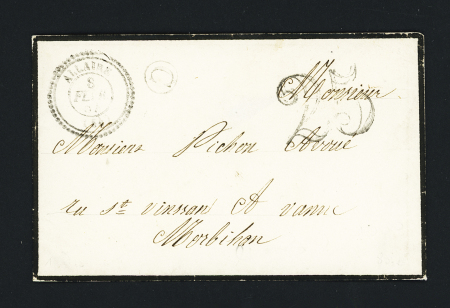 ALLAIRE
8
FEVR
C
25
Monsieur
Monsieur Pichon Avoué
ru st vinssan A vanne
Morbihan